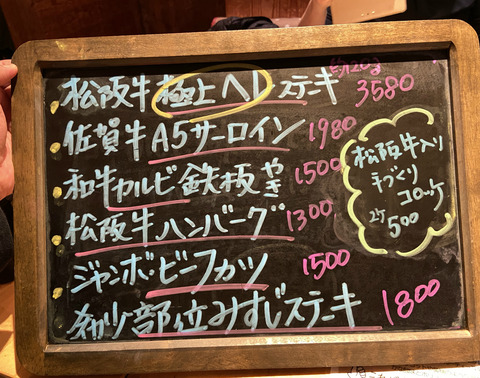 約120g
松阪牛極上ヘレステーキ 3580
佐賀牛A5サーロイン 1980
和牛カルビ鉄板やき 1500
松阪牛ハンバーグ 1300
ジャンボ・ビーフカツ 1500
希少部位みすじステーキ 1800
松阪牛入り
手づくり
コロッケ
2ケ
500